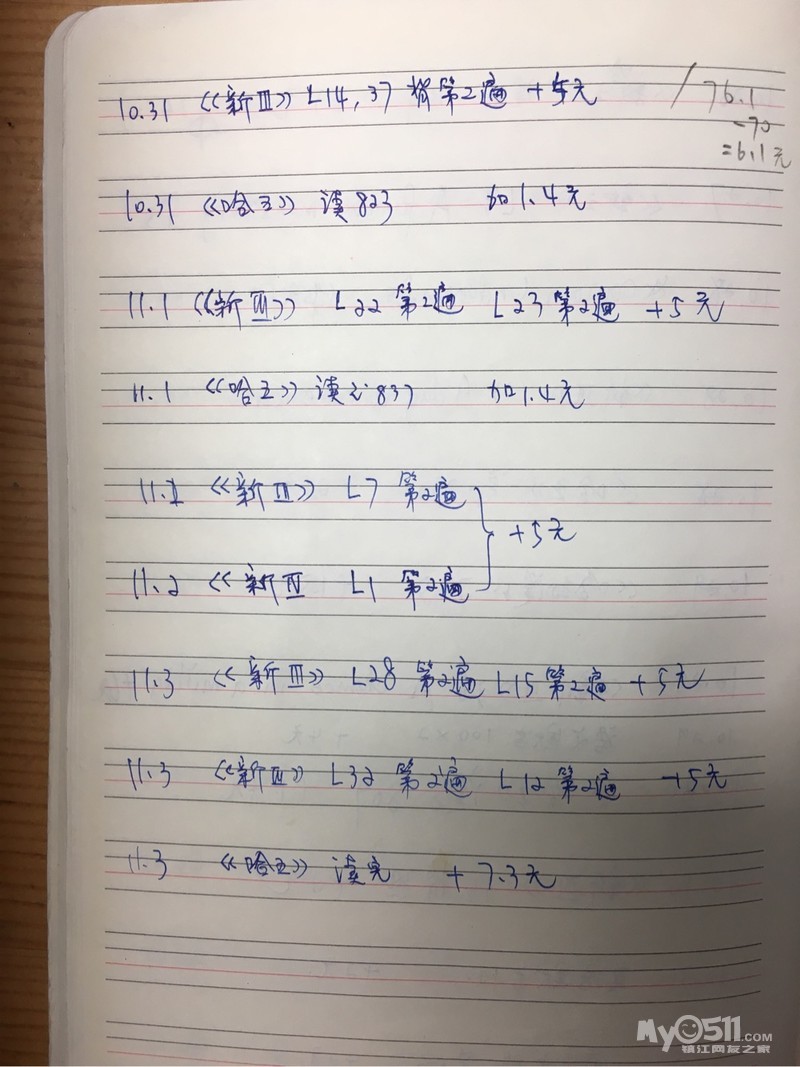 10.31 《新Ⅲ》 L14,37 第2遍 +5元 / 76.1
-70
=6.1元
10.31 《哈五》 读823 加1.4元
11.1 《新Ⅲ》 L22 第2遍 L23 第2遍 +5元
11.1 《哈五》 读 837 加1.4元
11.2 《新Ⅲ》 L7 第2遍
+5元
11.2 《新Ⅳ L1 第2遍
11.3 《新Ⅲ》 L28 第2遍 L15 第2遍 +5元
11.3 《新Ⅲ》 L32 第2遍 L12 第2遍 +5元
11.3 《哈五》 读完 +7.3元
My0511.COM
镇江网友之家